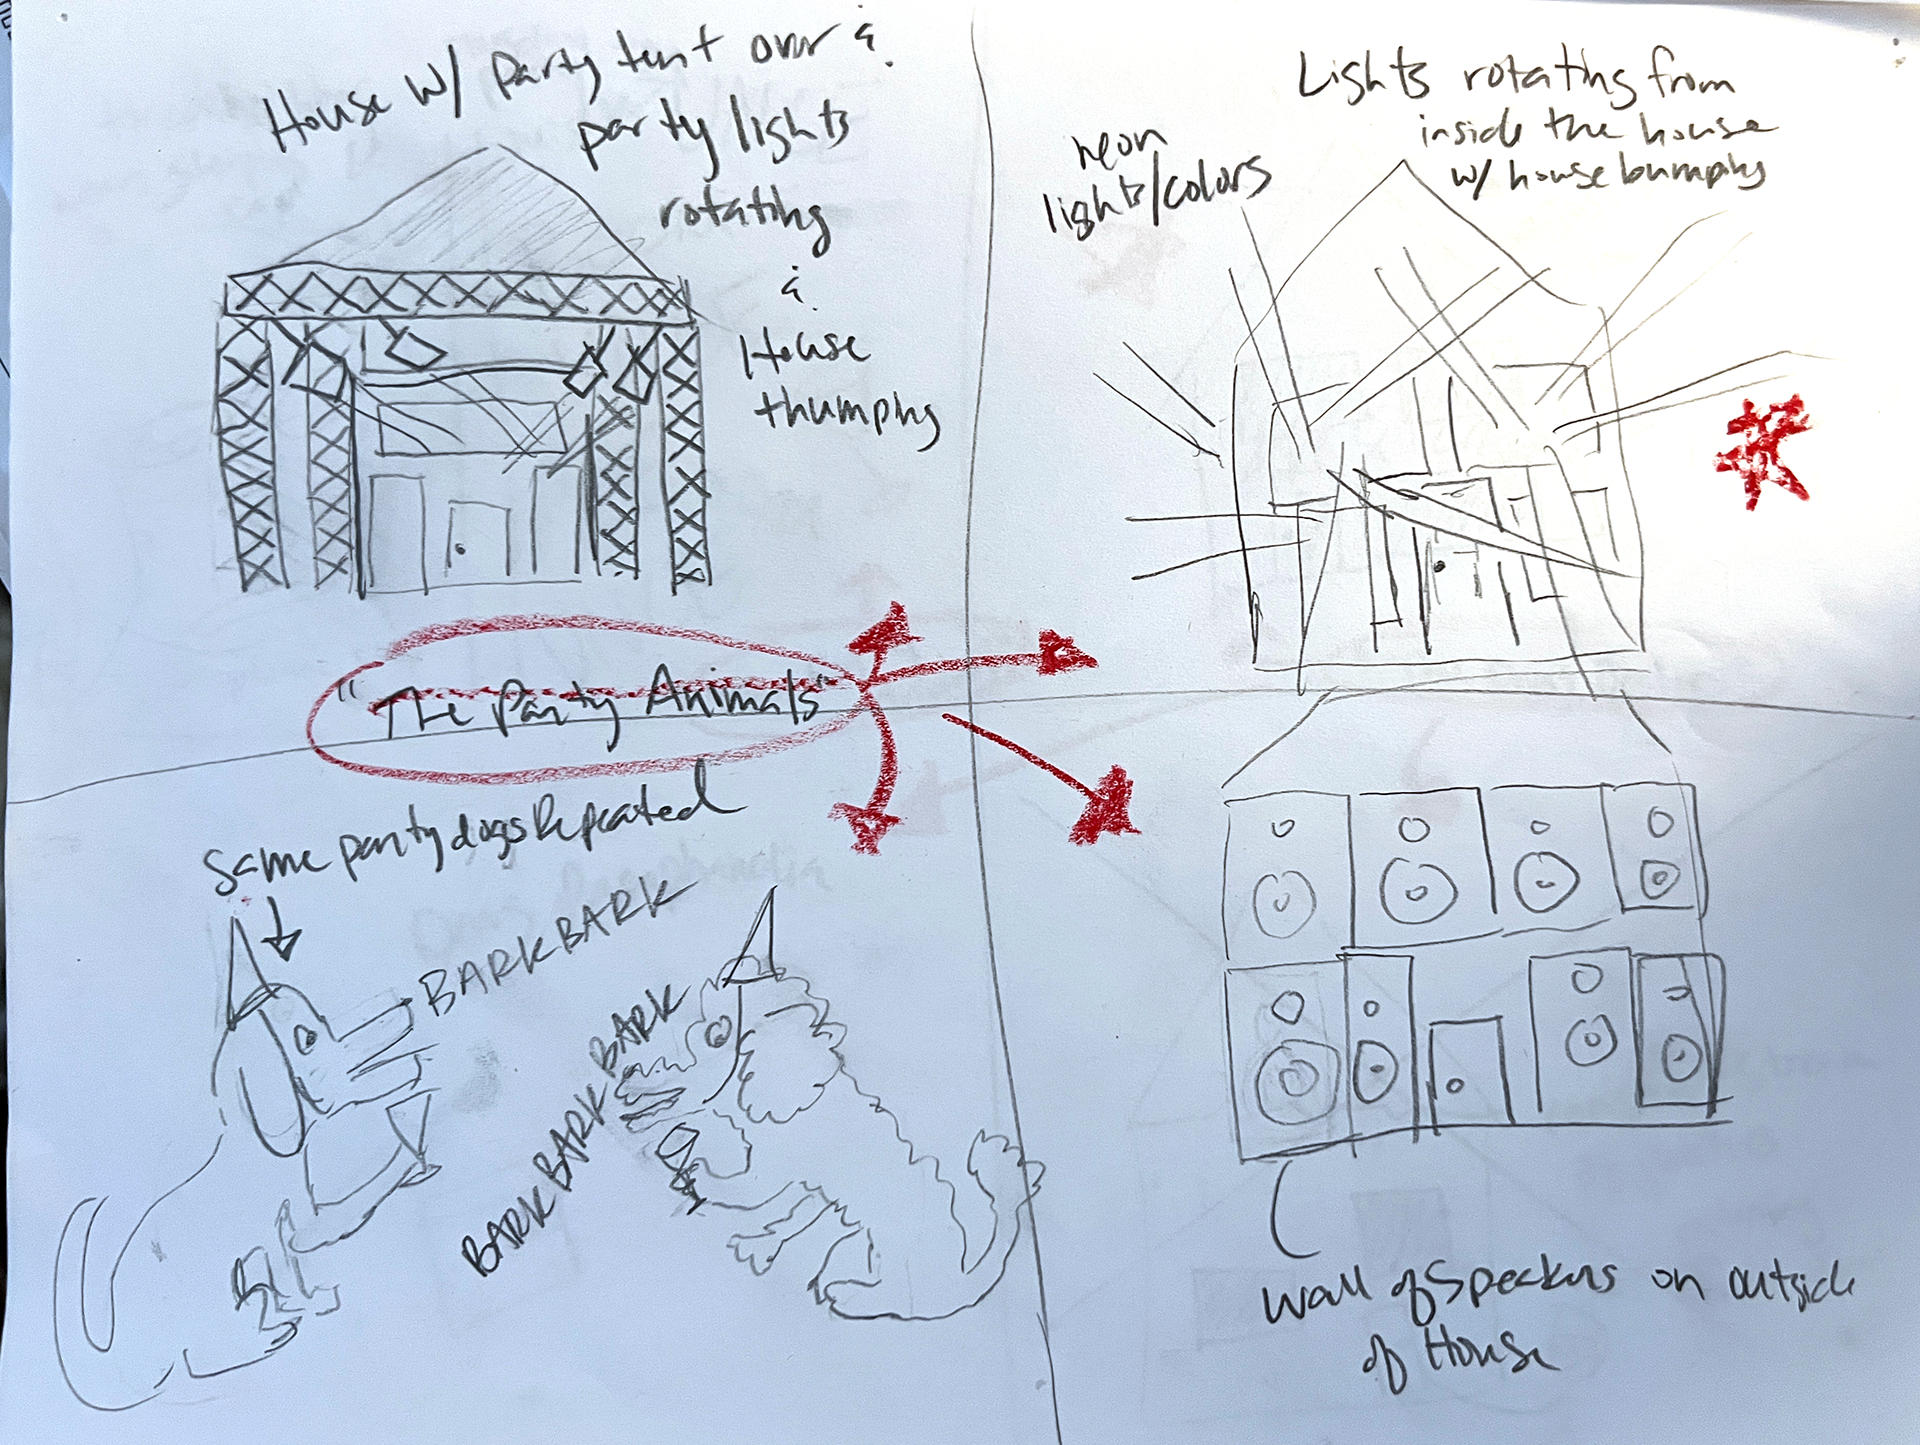 House w/ Party tent over &
party lights
rotating
&
House
thumping
neon
lights/colors
Lights rotating from
inside the house
w/ house bumping
"The Party Animals"
Same party dogs Repeated
BARK BARK
BARK BARK BARK
wall of Speakers on outside
of House